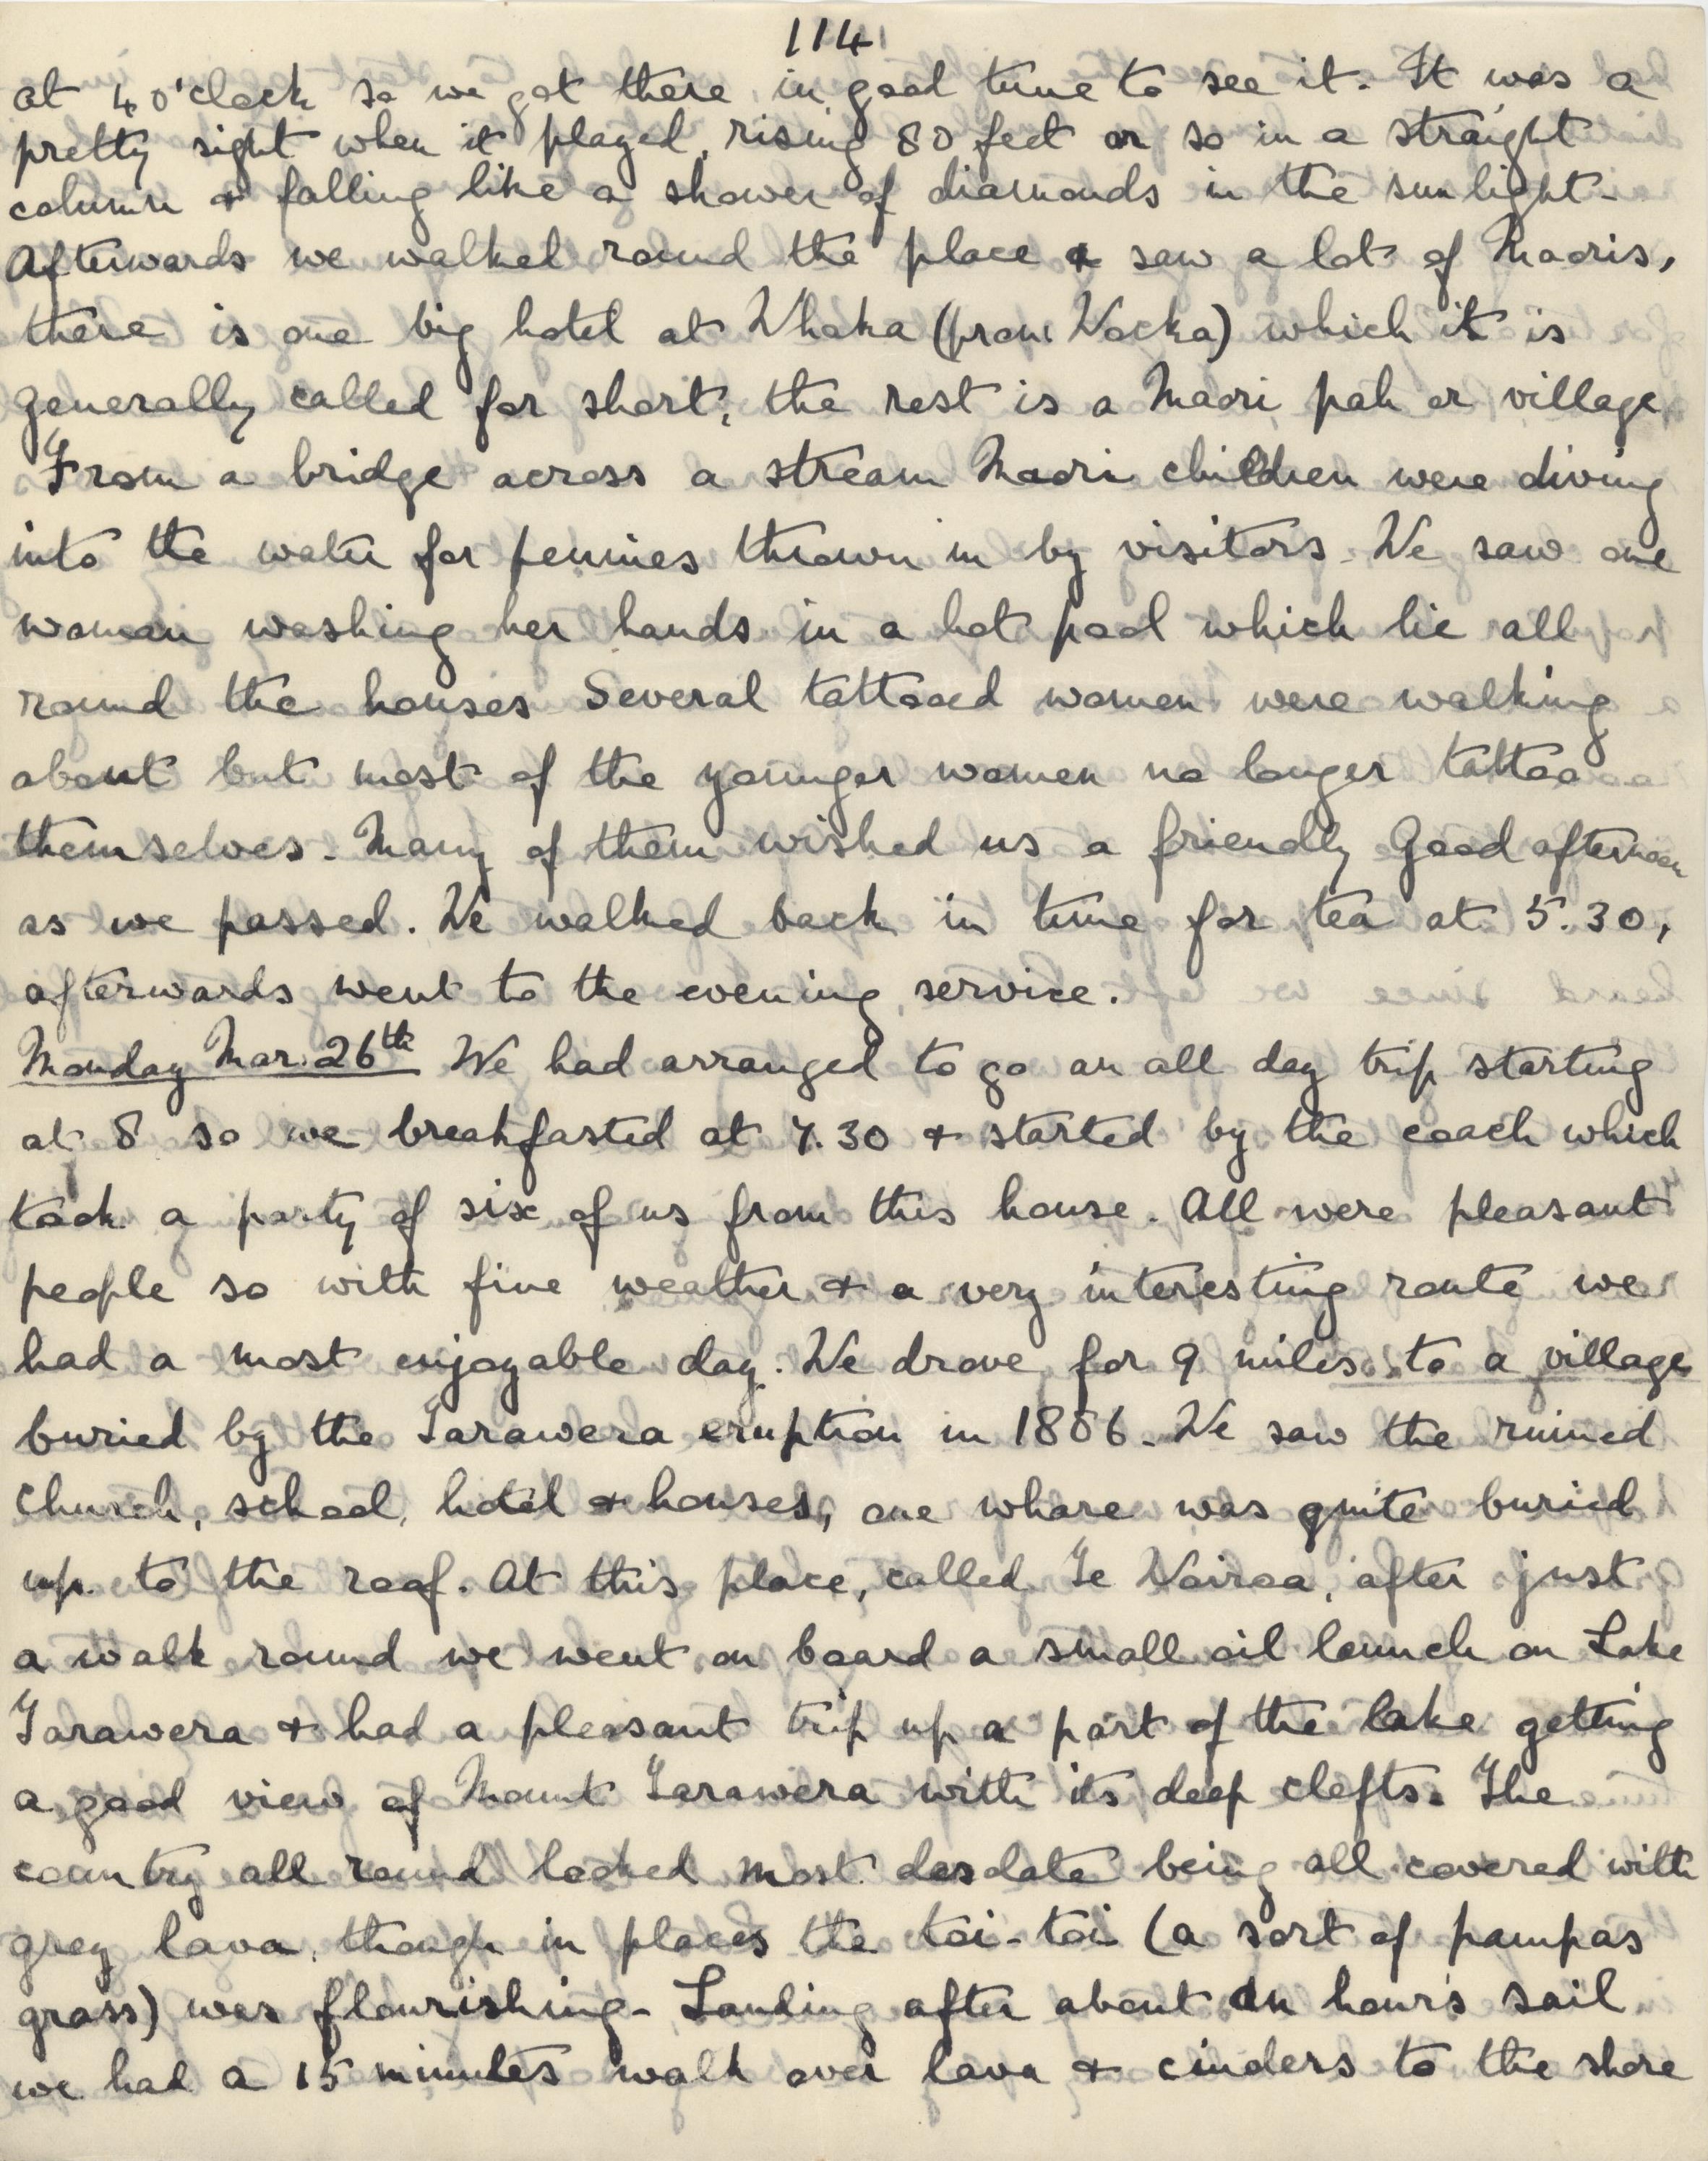 114
at 4 o'clock so we got there in good time to see it. It was a
pretty sight when it played, rising 80 feet or so in a straight
column & falling like a shower of diamonds in the sunlight.
Afterwards we walked round the place & saw a lot of Maoris,
there is one big hotel at Whaka (pron Wocka) which it is
generally called for short, the rest is a Maori pah or village.
From a bridge across a stream Maori children were diving
into the water for pennies thrown in by visitors. We saw one
woman washing her hands in a hot pool which lie all
round the houses Several tattooed women were walking
about but most of the younger women no longer tattoo
themselves. Many of them wished us a friendly Good afternoon
as we passed. We walked back in time for tea at 5.30,
afterwards went to the evening service.
Monday Mar. 26th We had arranged to go an all day trip starting
at 8 so we breakfasted at 7.30 & started by the coach which
took a party of six of us from this house. All were pleasant
people so with fine weather & a very interesting route we
had a most enjoyable day. We drove for 9 miles to a village
buried by the Tarawera eruption in 1886. We saw the ruined
church, school, hotel & houses, one whare was quite buried
up to the roof. At this place, called Te Wairoa, after just
a walk round we went on board a small oil launch on Lake
Tarawera & had a pleasant trip up a part of the lake getting
a good view of Mount Tarawera with its deep clefts. The
country all round looked most desolate being all covered with
grey lava, though in places the toi-toi (a sort of pampas
grass) was flourishing. Landing after about an hour's sail
we had a 15 minutes walk over lava & cinders to the shore